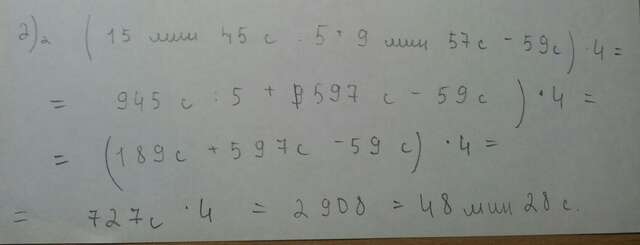 2)₂ (15 мин 45 с : 5 + 9 мин 57 с - 59 с) · 4 =
= 945 с : 5 + 597 с - 59 с) · 4 =
= (189 с + 597 с - 59 с) · 4 =
= 727 с · 4 = 2908 = 48 мин 28 с.